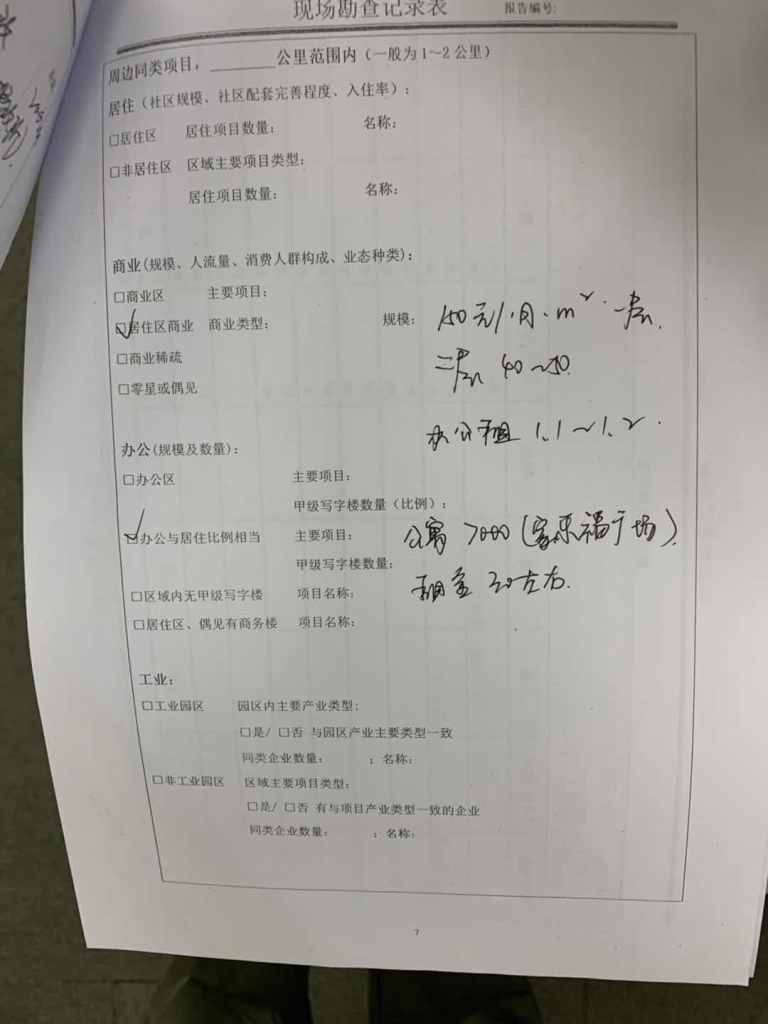 现场勘查记录表 报告编号:
周边同类项目，________公里范围内（一般为1～2公里）
居住（社区规模、社区配套完善程度、入住率）：
□居住区 居住项目数量： 名称：
□非居住区 区域主要项目类型：
居住项目数量： 名称：
商业(规模、人流量、消费人群构成、业态种类)：
□商业区 主要项目：
☑居住区商业 商业类型： 规模： 150元/月·m²·一层.
□商业稀疏 二层 40～50.
□零星或偶见
办公租 1.1～1.2.
办公(规模及数量)：
□办公区 主要项目：
甲级写字楼数量（比例）：
☑办公与居住比例相当 主要项目： 公寓 7000（家乐福广场）.
甲级写字楼数量： 租金 30左右.
□区域内无甲级写字楼 项目名称：
□居住区、偶见有商务楼 项目名称：
工业：
□工业园区 园区内主要产业类型：
□是/ □否 与园区产业主要类型一致
同类企业数量： ；名称：
□非工业园区 区域主要项目类型：
□是/ □否 有与项目产业类型一致的企业
同类企业数量： ；名称：
7